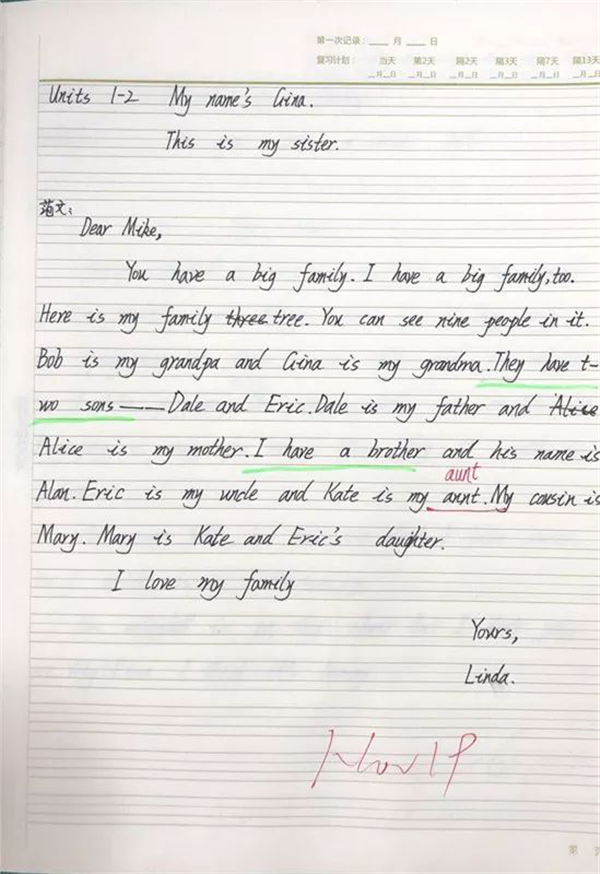 第一次记录：____月____日
复习计划： 当天 第2天 隔2天 隔3天 隔7天 隔13天
__月__日 __月__日 __月__日 __月__日 __月__日 __月__日
Units 1-2 My name's Gina.
This is my sister.
范文：
Dear Mike,
You have a big family. I have a big family, too.
Here is my family three tree. You can see nine people in it.
Bob is my grandpa and Gina is my grandma. They have t-
wo sons —— Dale and Eric. Dale is my father and Alice
Alice is my mother. I have a brother and his name is
aunt
Alan. Eric is my uncle and Kate is my annt. My cousin is
Mary. Mary is Kate and Eric's daughter.
I love my family
Yours,
Linda.
Nov 19
第